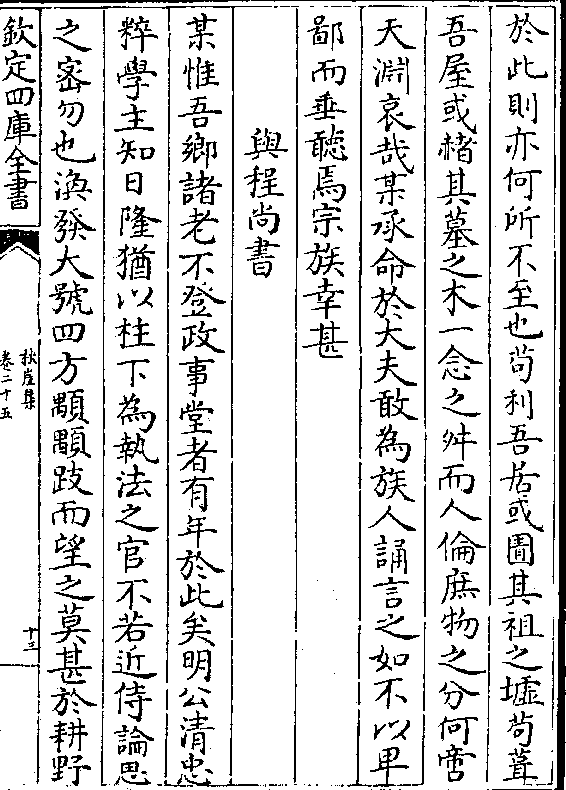 於此則亦何所不至也苟利吾居或圊其祖之墟苟葺
吾屋或楮其墓之木一念之舛而人倫庶物之分何啻
天淵哀哉某承命於大夫敢為族人誦言之如不以卑
鄙而垂聽焉宗族幸甚
與程尚書
某惟吾鄉諸老不登政事堂者有年於此矣明公清忠
粹學主知日隆猶以柱下為執法之官不若近侍論思
之密勿也渙發大號四方顒顒跂而望之莫甚於耕野
欽定四庫全書
秋崖集
卷二十五
十三